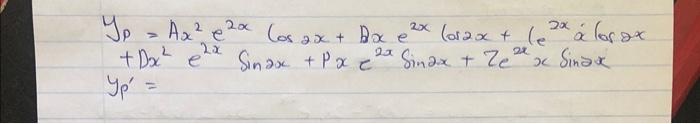 Yp = Ax² e^2x Cos 2x + Bx e^2x Cos2x + Ce^2x x Cos 2x
+Dx² e^2x Sin2x + Px e^2x Sin2x + Ze^2x x Sin2x
Yp' =